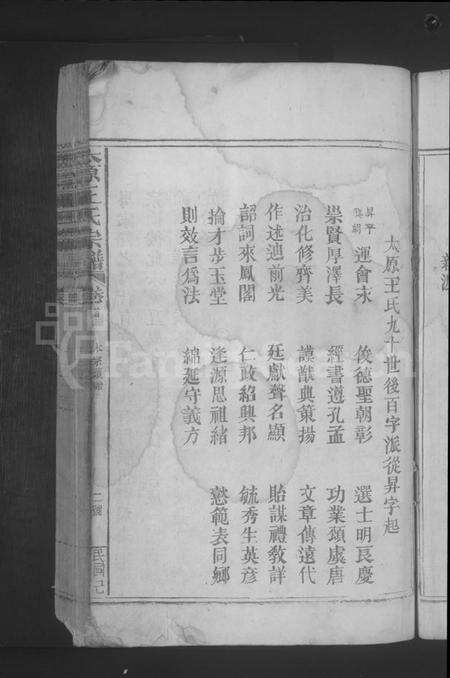 太原王氏九十世後百字派從昇字起
昇平運會永 俊德聖朝彰 選士明良慶
崇賢厚澤長 經書遵孔孟 功業頌虞唐
治化修齊美 謨猷典策揚 文章傳遠代
作述迪前光 廷獻聲名顯 貽謀禮教詳
詔詞來鳳閣 仁政紹興邦 毓秀生英彥
掄才步玉堂 逢源思祖緒 懿範表同鄉
則效言爲法 綿延守義方
太原王氏宗譜
二